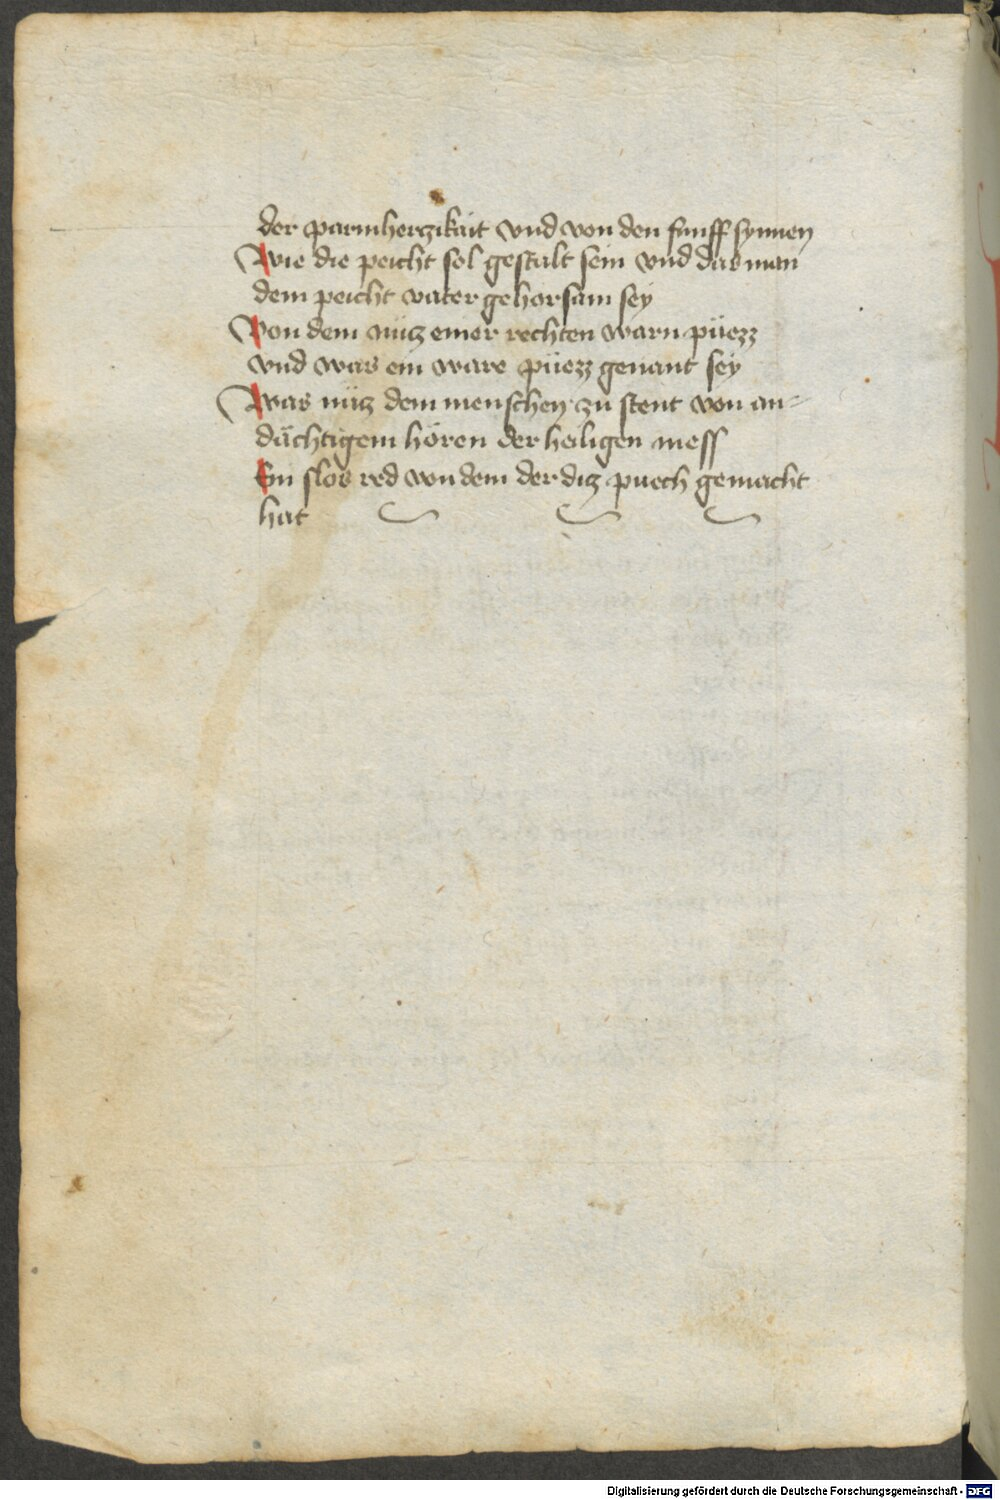 der parmherczikait vnd von den funff synnen
Wie die peicht sol gestalt sein vnd das man
dem peicht vater gehorsam sey
Von dem nücz einer rechten warn püezz
vnd was ein ware püezz genant sey
Was nücz dem menschen zu stent von an-
dächtigem hören der heiligen mess
Ein slos red von dem der dicz puech gemacht
hat
Digitalisierung gefördert durch die Deutsche Forschungsgemeinschaft - DFG